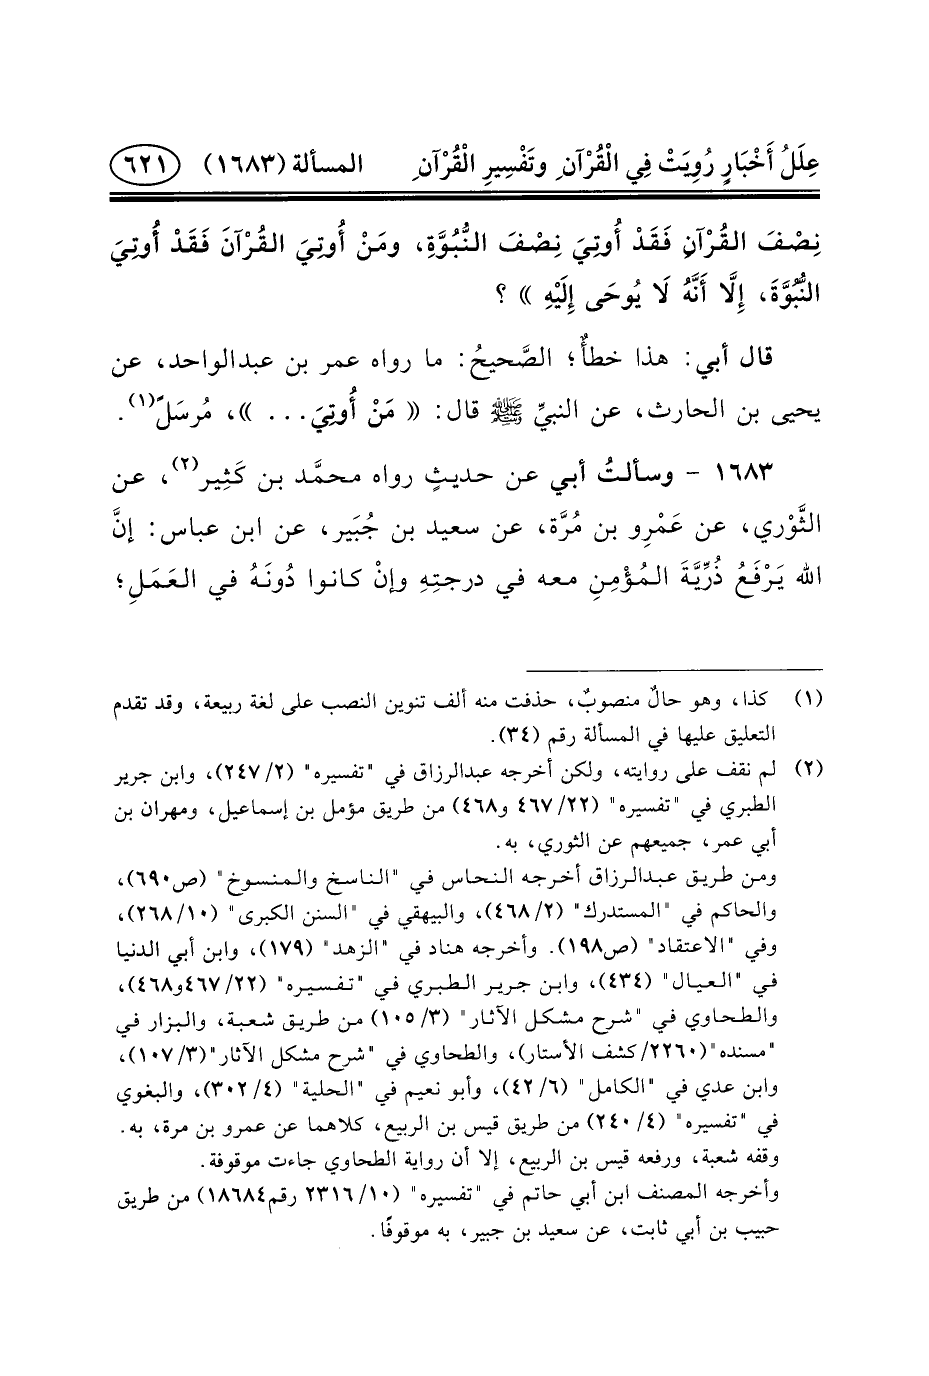 عِلَلُ أَخْبَارٍ رُوِيَتْ فِي الْقُرْآنِ وتَفْسِيرِ الْقُرْآنِ المسألة (١٦٨٣) ٦٢١
نِصْفَ القُرْآنِ فَقَدْ أُوتِيَ نِصْفَ النُّبُوَّةِ، ومَنْ أُوتِيَ القُرْآنَ فَقَدْ أُوتِيَ
النُّبُوَّةَ، إِلَّا أَنَّهُ لَا يُوحَى إِلَيْهِ » ؟
قال أبي: هذا خطأٌ؛ الصَّحيحُ: ما رواه عمر بن عبدالواحد، عن
يحيى بن الحارث، عن النبيِّ ﷺ قال: « مَنْ أُوتِيَ... »، مُرسَلً(١).
١٦٨٣ - وسألتُ أبي عن حديثٍ رواه محمَّد بن كَثِير(٢)، عن
الثَّوْري، عن عَمْرِو بن مُرَّة، عن سعيد بن جُبَير، عن ابن عباس: إنَّ
الله يَرْفَعُ ذُرِّيَّةَ المُؤْمِنِ معه في درجتِهِ وإنْ كانوا دُونَهُ في العَمَلِ؛
(١) كذا، وهو حالٌ منصوبٌ، حذفت منه ألف تنوين النصب على لغة ربيعة، وقد تقدم
التعليق عليها في المسألة رقم (٣٤).
(٢) لم نقف على روايته، ولكن أخرجه عبدالرزاق في "تفسيره" (٢/ ٢٤٧)، وابن جرير
الطبري في "تفسيره" (٢٢/ ٤٦٧ و٤٦٨) من طريق مؤمل بن إسماعيل، ومهران بن
أبي عمر، جميعهم عن الثوري، به.
ومن طريق عبدالرزاق أخرجه النحاس في "الناسخ والمنسوخ" (ص٦٩٠)،
والحاكم في "المستدرك" (٢/ ٤٦٨)، والبيهقي في "السنن الكبرى" (١٠/ ٢٦٨)،
وفي "الاعتقاد" (ص١٩٨). وأخرجه هناد في "الزهد" (١٧٩)، وابن أبي الدنيا
في "العيال" (٤٣٤)، وابن جرير الطبري في "تفسيره" (٢٢/ ٤٦٧و٤٦٨)،
والطحاوي في "شرح مشكل الآثار" (٣/ ١٠٥) من طريق شعبة، والبزار في
"مسنده"(٢٢٦٠/كشف الأستار)، والطحاوي في "شرح مشكل الآثار"(٣/ ١٠٧)،
وابن عدي في "الكامل" (٦/ ٤٢)، وأبو نعيم في "الحلية" (٤/ ٣٠٢)، والبغوي
في "تفسيره" (٤/ ٢٤٠) من طريق قيس بن الربيع، كلاهما عن عمرو بن مرة، به.
وقفه شعبة، ورفعه قيس بن الربيع، إلا أن رواية الطحاوي جاءت موقوفة.
وأخرجه المصنف ابن أبي حاتم في "تفسيره" (١٠/ ٢٣١٦ رقم١٨٦٨٤) من طريق
حبيب بن أبي ثابت، عن سعيد بن جبير، به موقوفًا.